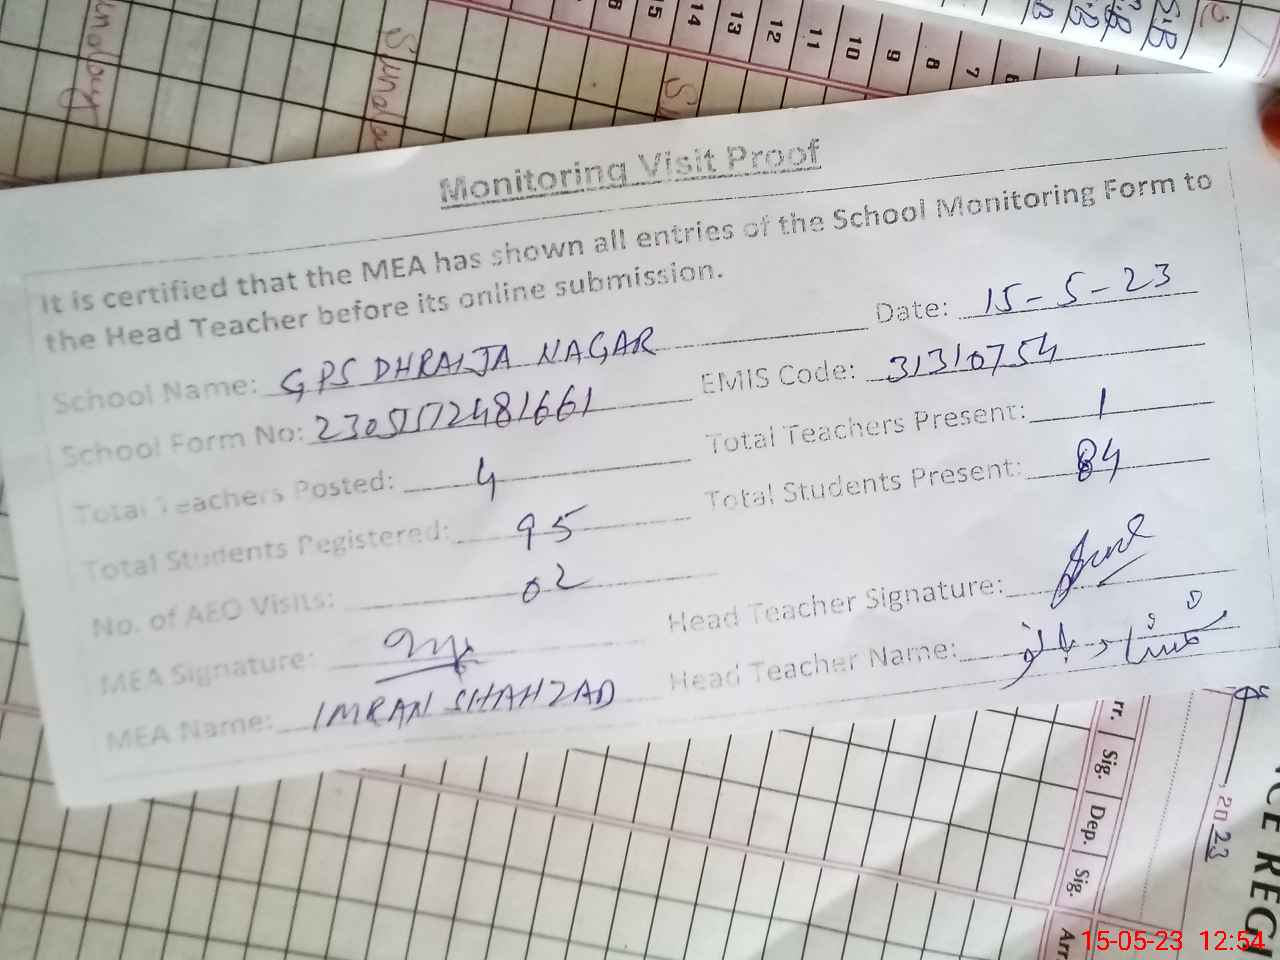 Sunday
Sunda
S
15 14 13 12 11 10 9 8 7
S.B
Monitoring Visit Proof
It is certified that the MEA has shown all entries of the School Monitoring Form to
the Head Teacher before its online submission.
School Name: GPS DHRAIJA NAGAR Date: 15-5-23
School Form No: 2305152481661 EMIS Code: 31310754
Total Teachers Posted: 4 Total Teachers Present: 1
Total Students Registered: 95 Total Students Present: 84
No. of AEO Visits: 02
MEA Signature: Head Teacher Signature:
MEA Name: IMRAN SHAHZAD Head Teacher Name:
rr. Sig. Dep. Sig. Arr
2023
CE REGI
15-05-23 12:54